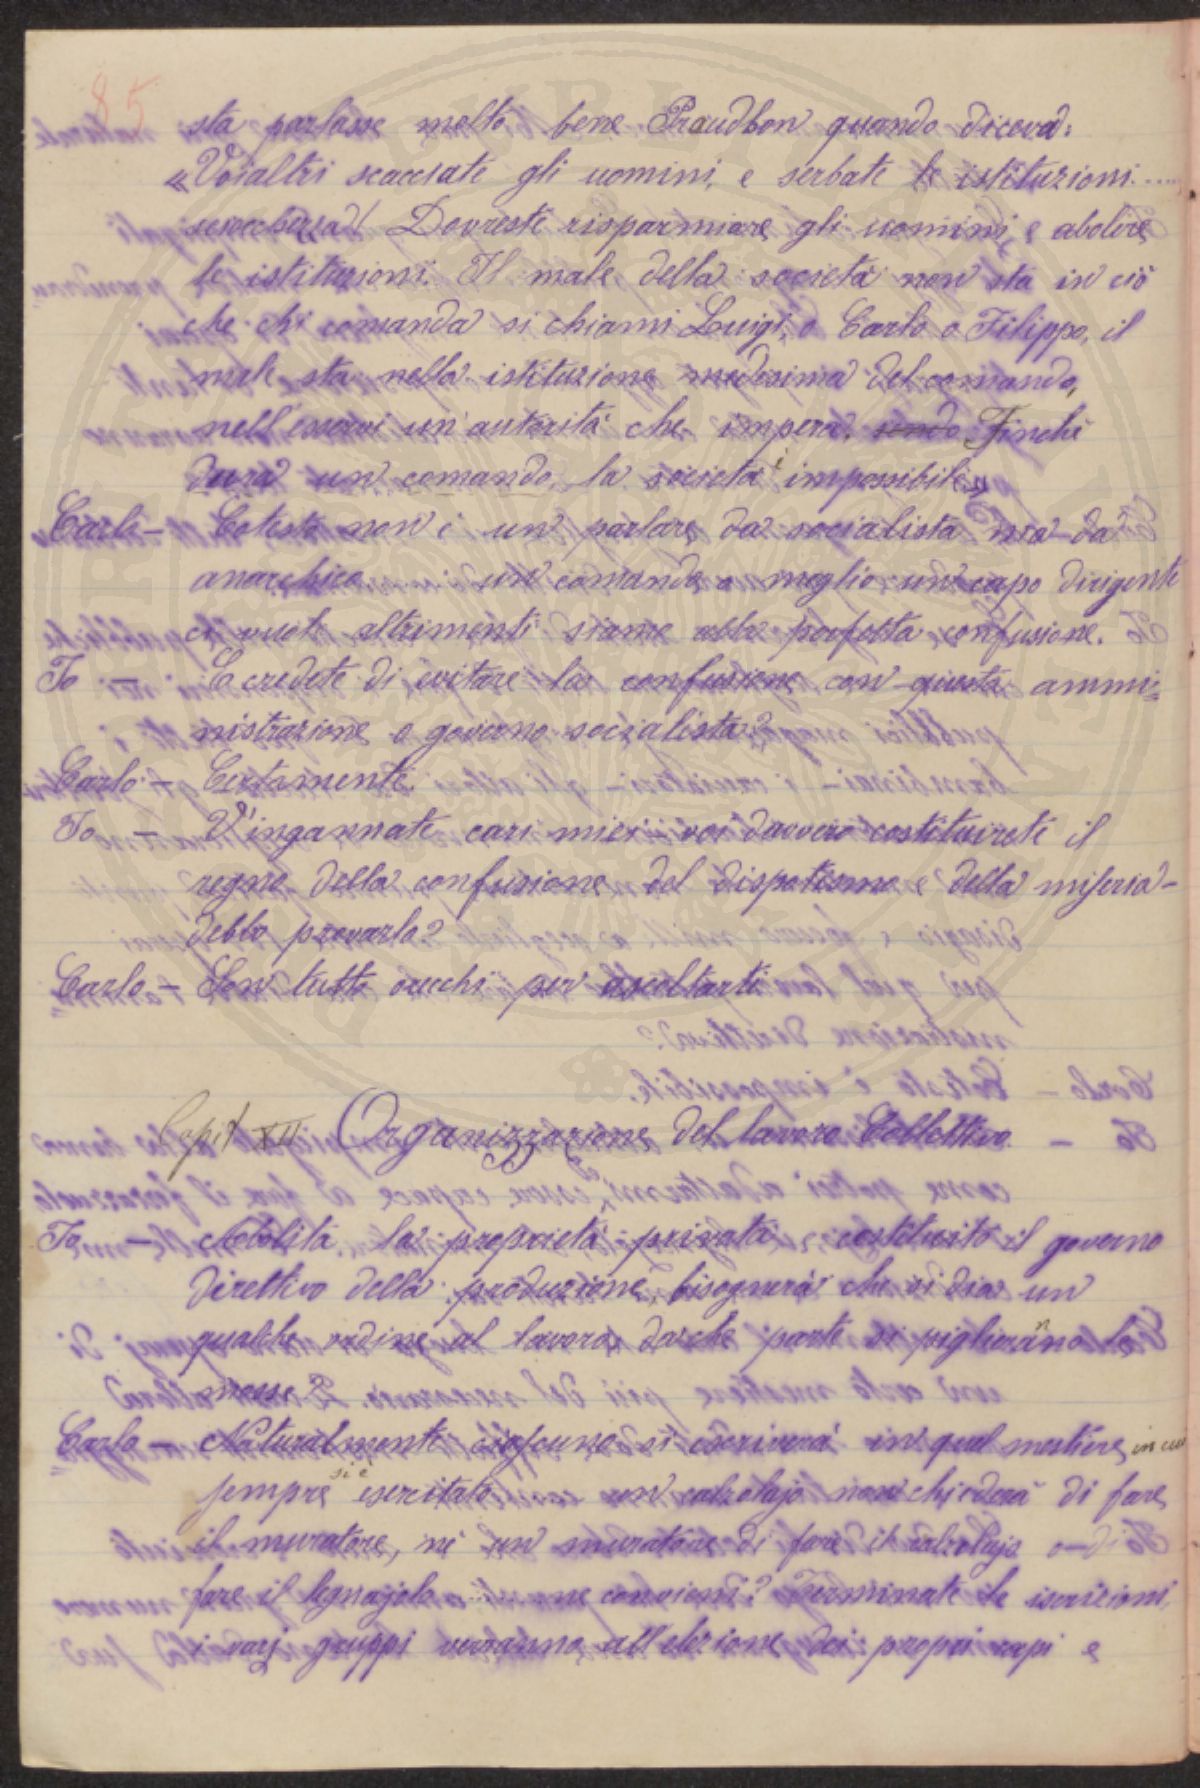 85
sta parlasse molto bene Praudhon quando diceva:
«Voialtri scacciate gli uomini, e serbate le istituzioni.....
sciocchezza! Dovreste risparmiare gli uomini, e abolire
le istituzioni. Il male della società non sta in ciò
che chi comanda si chiami Luigi, o Carlo o Filippo, il
male sta nella istituzione medesima del comando,
nell'esservi un'autorità che impera. Finchè
durà un comando, la società è impossibile»
Carlo — Cotesto non è un parlare da socialista ma da
anarchico un comando o meglio un capo dirigente
ci vuole altrimenti siamo alla perfetta confusione.
Io — E credete di evitare la confusione con questa ammi=
nistrazione o governo socialista?
Carlo — Certamente.
Io — V'ingannate cari miei: voi davvero costituirete il
regno della confusione del dispotismo e della miseria—
debbo provarlo?
Carlo — Son tutto orecchi per ascoltarti
Capit XII Organizzazione del lavoro Collettivo
Io — Abolita la proprietà privata e costituito il governo
direttivo della produzione, bisognerà che si dia un
qualche ordine al lavoro, da che parte si piglieranno le
mosse?
Carlo — Naturalmente ciascuno si iscriverà in quel mestiere in cui
sempre si è esercitato un calzolajo non chiederà di fare
il muratore, nè un muratore di fare il calzolajo o di
fare il legnajolo ne convieni? Terminate le iscrizioni,
i varj gruppi verranno all'elezione dei proprii capi e